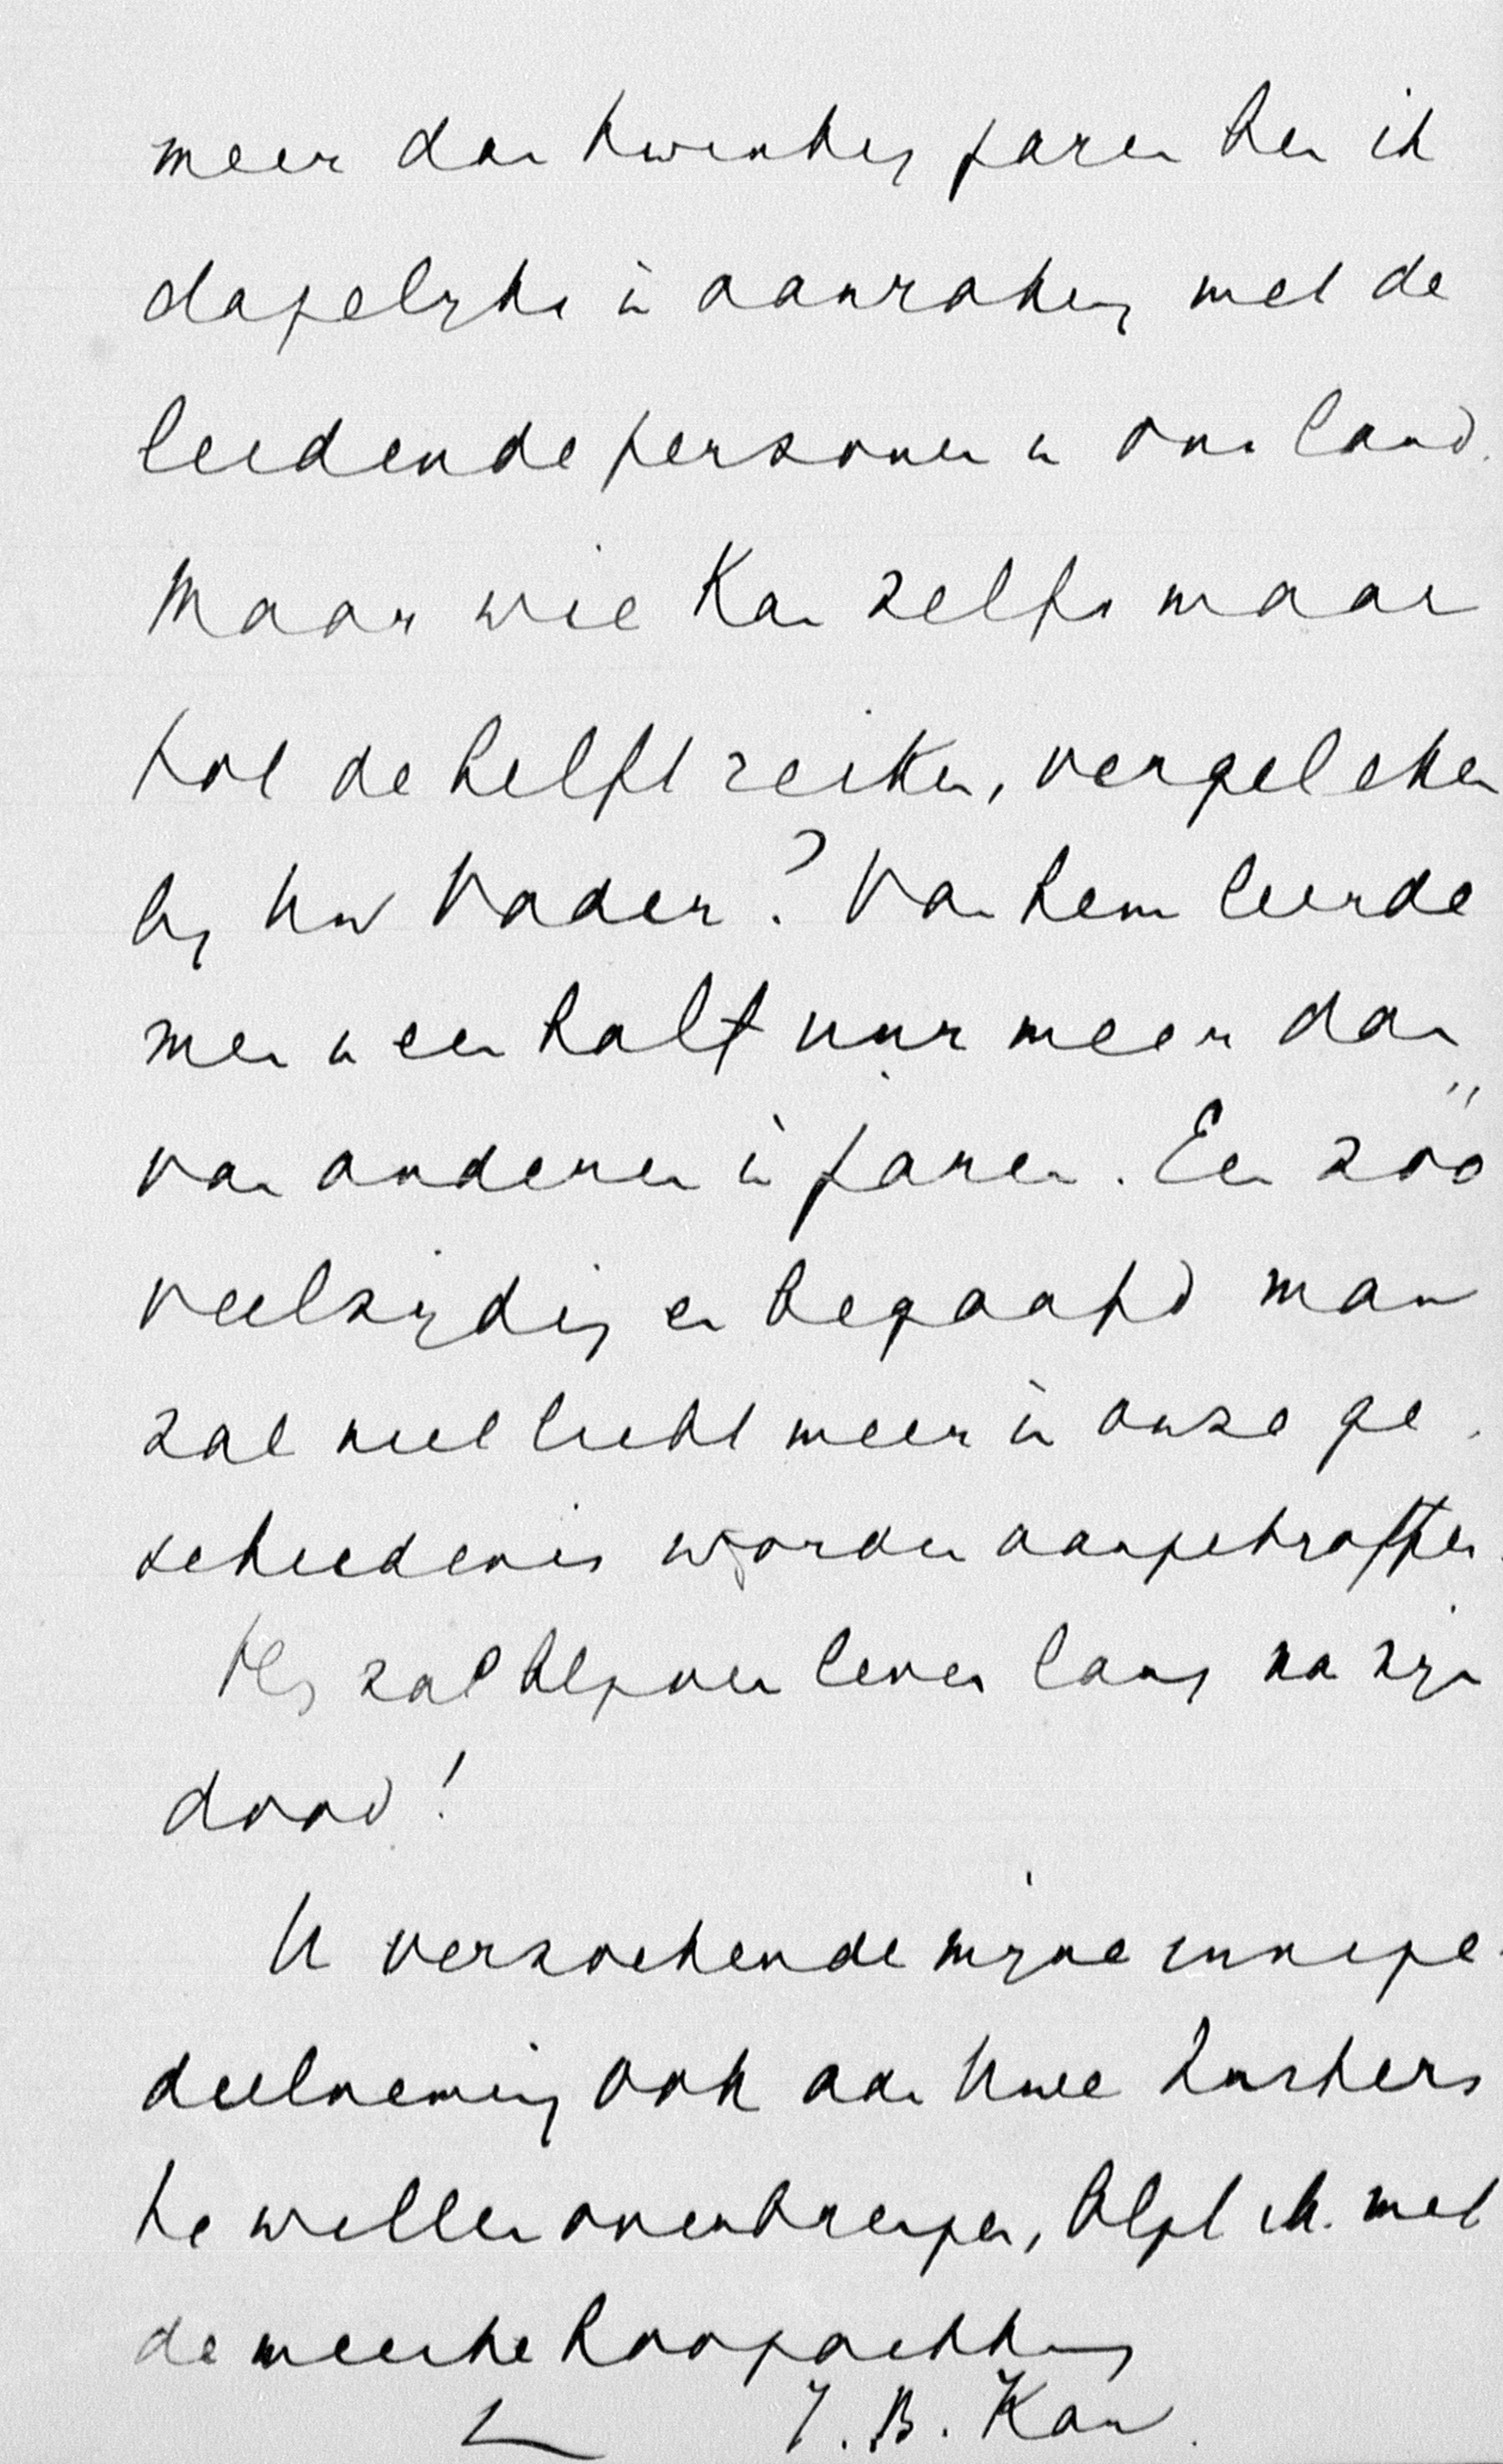 meer dan twintig jaren ben ik
dagelijks in aanraking met de
leidende personen in ons land.
Maar wie kan zelfs maar
tot de helft reiken, vergeleken
bij Uw Vader? Van hem leerde
men in een half uur meer dan
van anderen in jaren. Een zóó
veelzijdig en begaafd man
zal niet licht meer in onze ge-
schiedenis worden aangetroffen.
Hij zal blijven leven lang na zijn
dood!
U verzoekende mijne innige
deelneming ook aan Uwe Zusters
te willen overbrengen, blijf ik met
de meeste hoogachting
J. B. Kan.